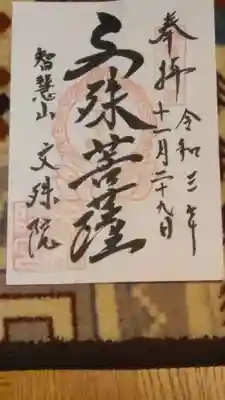 奉拝
令和三年
十一月二十九日
文殊菩薩
智慧山
文殊院